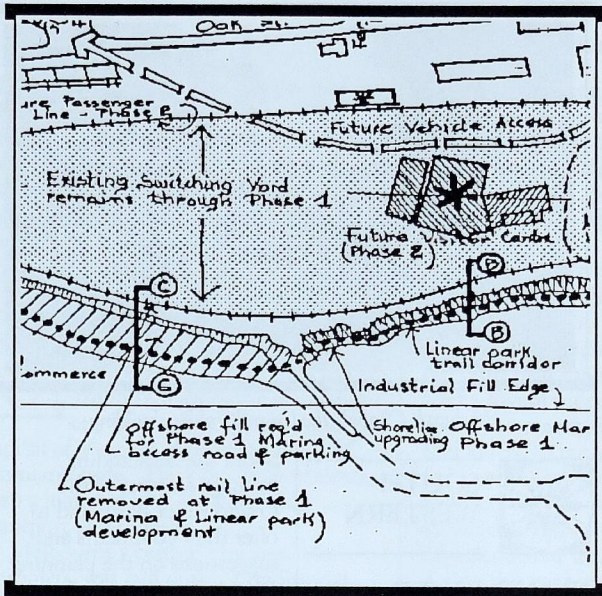 Oak St.
ure Passenger
Line - Phase 2
Future Vehicle Access
Existing Switching Yard
remains through Phase 1
Future Visitor Centre
(Phase 2)
C
D
C
D
ommerce
Linear park
trail corridor
Industrial Fill Edge
offshore fill req'd
for Phase 1 Marina
access road & parking
Shoreline
upgrading
Offshore Mar
Phase 1
Outermost rail line
removed at Phase 1
(Marina & Linear park)
development